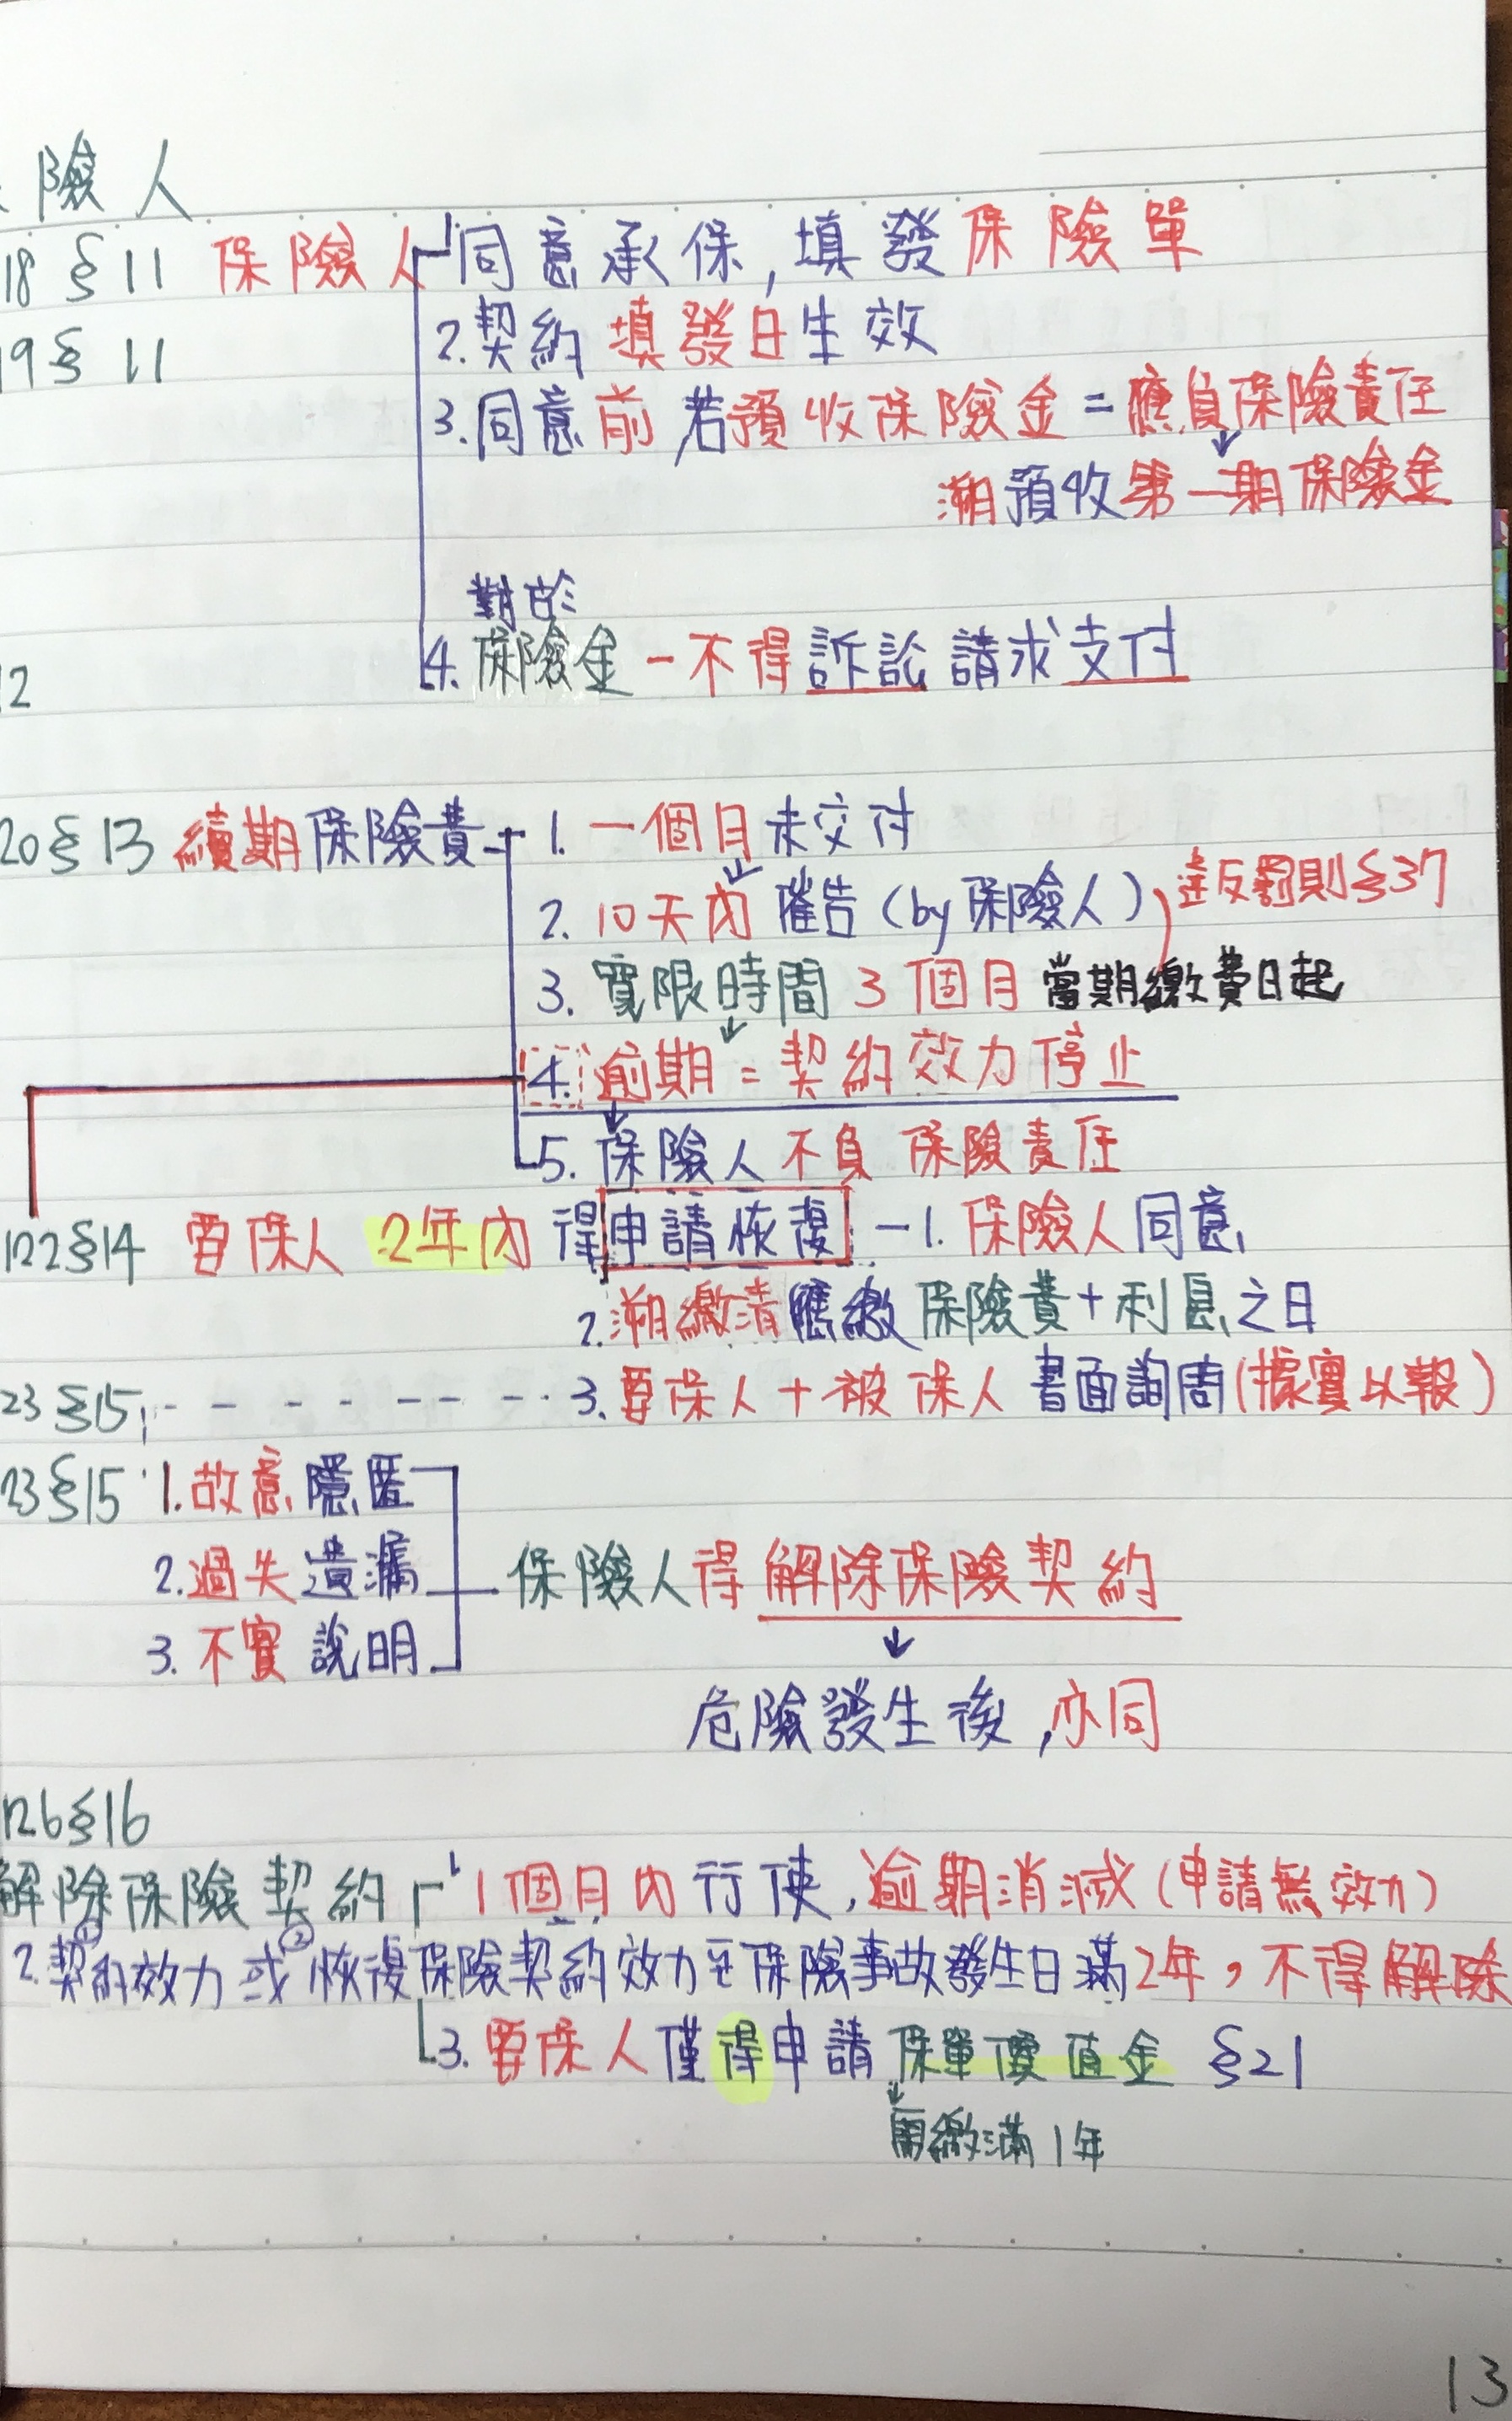 險人
18 §11 保險人 1 同意承保,填發保險單
19 § 11 2.契約 填發日生效
3.同意前 若預收保險金=應負保險責任
溯預收第一期保險金
對於
12 4. 保險金-不得訴訟請求支付
20 § 13 續期保險費 1. 一個月未交付
2. 10天內 催告(by保險人) 違反罰則§37
3. 寬限時間 3個月 當期繳費日起
4. 逾期=契約效力停止
5. 保險人不負保險責任
122§14 要保人 2年內 得申請恢復 -1. 保險人同意
2.溯繳清應繳保險費+利息之日
23 §15 3.要保人+被保人 書面詢問(據實以報)
23§15 1.故意隱匿
2.過失遺漏 保險人得解除保險契約
3. 不實說明
危險發生後,亦同
126§16
解除保險契約 1 1個月內行使,逾期消滅(申請無效力)
2.①契約效力或②恢復保險契約效力至保險事故發生日滿2年,不得解除
3.要保人僅得申請保單價值金 §21
需繳滿1年
13